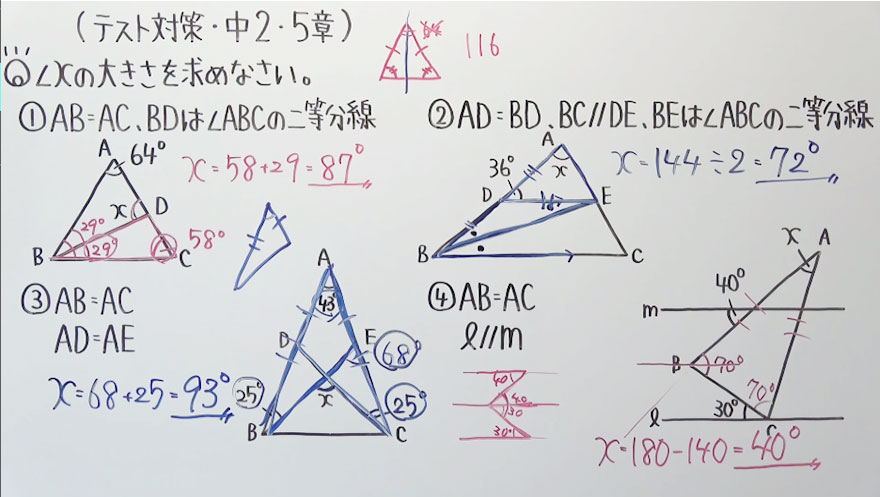 (テスト対策・中2・5章)
116
⑥∠xの大きさを求めなさい。
①AB=AC、BDは∠ABCの二等分線
A 64°
x=58+29=87°
x D
29°
29°
B C 58°
②AD=BD、BC//DE、BEは∠ABCの二等分線
A
x=144÷2=72°
36° x
D E
B C
③AB=AC
AD=AE
x=68+25=93°
A
43°
D E
68°
25° x 25°
B C
④AB=AC
l//m
40
40
30
30°
x A
40°
m
B 70°
70°
30°
l C
x=180-140=40°